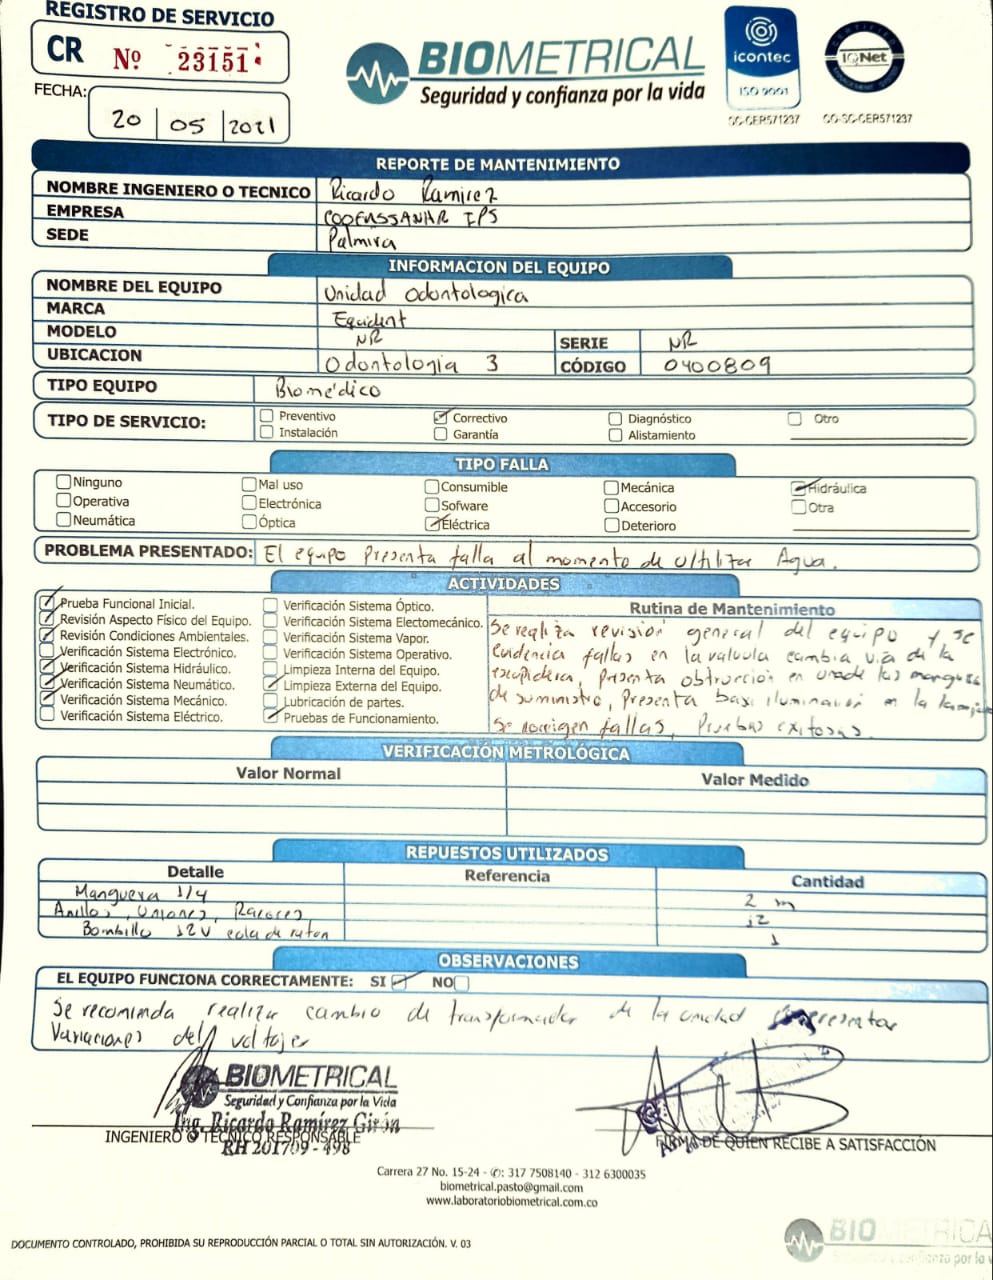 REGISTRO DE SERVICIO
CR Nº 23151
FECHA: 20 05 2021
BIOMETRICAL
Seguridad y confianza por la vida
icontec
ISO 9001
SC-CER571237
IQNet
CO-SC-CER571237
REPORTE DE MANTENIMIENTO
NOMBRE INGENIERO O TECNICO Ricardo Ramirez
EMPRESA COOEMSSANAR IPS
SEDE Palmira
INFORMACION DEL EQUIPO
NOMBRE DEL EQUIPO Unidad Odontologica
MARCA Equident
MODELO NR SERIE NR
UBICACION Odontologia 3 CÓDIGO 0400809
TIPO EQUIPO Biomédico
TIPO DE SERVICIO: Preventivo Correctivo Diagnóstico Otro
Instalación Garantía Alistamiento
TIPO FALLA
Ninguno Mal uso Consumible Mecánica Hidráulica
Operativa Electrónica Sofware Accesorio Otra
Neumática Óptica Eléctrica Deterioro
PROBLEMA PRESENTADO: El equipo presenta falla al momento de ultilizar Agua.
ACTIVIDADES
Prueba Funcional Inicial.
Revisión Aspecto Físico del Equipo.
Revisión Condiciones Ambientales.
Verificación Sistema Electrónico.
Verificación Sistema Hidráulico.
Verificación Sistema Neumático.
Verificación Sistema Mecánico.
Verificación Sistema Eléctrico.
Verificación Sistema Óptico.
Verificación Sistema Electomecánico.
Verificación Sistema Vapor.
Verificación Sistema Operativo.
Limpieza Interna del Equipo.
Limpieza Externa del Equipo.
Lubricación de partes.
Pruebas de Funcionamiento.
Rutina de Mantenimiento
Se realiza revisión general del equipo y se
evidencia fallas en la valvula cambia via de la
escupidera, presenta obstrucción en una de las mangueras
de suministro, Presenta baja iluminación en la lampara
Se corrigen fallas, Pruebas exitosas.
VERIFICACIÓN METROLÓGICA
Valor Normal Valor Medido
REPUESTOS UTILIZADOS
Detalle Referencia Cantidad
Manguera 1/4 2 m
Anillos, Uniones, Racores 12
Bombillo 12V cola de raton 1
OBSERVACIONES
EL EQUIPO FUNCIONA CORRECTAMENTE: SI NO
Se recominda realizar cambio de transformador de la unidad presentar
Variaciones del voltaje
BIOMETRICAL
Seguridad y Confianza por la Vida
Ing. Ricardo Ramírez Girón
INGENIERO O TECNICO RESPONSABLE
RH 201709 - 498
FIRMA DE QUIEN RECIBE A SATISFACCIÓN
Carrera 27 No. 15-24 - ✆: 317 7508140 - 312 6300035
biometrical.pasto@gmail.com
www.laboratoriobiometrical.com.co
DOCUMENTO CONTROLADO, PROHIBIDA SU REPRODUCCIÓN PARCIAL O TOTAL SIN AUTORIZACIÓN. V. 03
BIOMETRICA